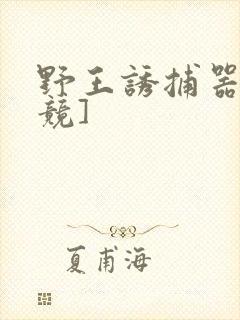 野王誘捕器
競]
夏甫海